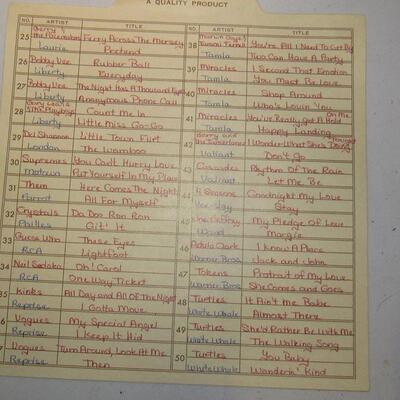 A QUALITY PRODUCT
NO. ARTIST TITLE
25 Gerry & the Pacemakers Ferry Across The Mersey
Laurie Pretend
26 Bobby Vee Rubber Ball
Liberty Everyday
27 Bobby Vee The Night Has A Thousand Eyes
Liberty Anonymous Phone Call
Gary Lewis & The Playboys Count Me In
Liberty Little Miss Go-Go
29 Del Shannon Little Town Flirt
London The Wamboo
30 Supremes You Can't Hurry Love
Motown Put Yourself In My Place
31 Them Here Comes The Night
Parrot All For Myself
32 Crystals Da Doo Ron Ron
Philles Git' It
33 Guess Who These Eyes
RCA Lightfoot
34 Neil Sedaka Oh! Carol
RCA One Way Ticket
35 Kinks All Day and All Of The Night
Reprise I Gotta Move
Vogues My Special Angel
Reprise I Keep It Hid
Vogues Turn Around, Look At Me
Reprise Then
NO. ARTIST TITLE
38 Marvin Gaye & Tammi Terrell You're All I Need To Get By
Tamla Two Can Have A Party
39 Miracles I Second That Emotion
Tamla You Must Be Love
40 Miracles Shop Around
Tamla Who's Lovin' You
41 Miracles You've Really Got A Hold On Me
Tamla Happy Landing
42 Gerry and the I Wonder What She's Doing Tonight
Valiant Don't Go
43 Cascades Rhythm Of The Rain
Valiant Let Me Be
44 4 Seasons Goodnight My Love
Vee-Jay Stay
45 My Pledge Of Love
Wand Margie
46 Petula Clark I Know A Place
Warner Bros. Jack and John
47 Tokens Portrait of My Love
Warner Bros. She Comes and Goes
48 Turtles It Ain't Me Babe
White Whale Almost There
49 Turtles She'd Rather Be With Me
White Whale The Walking Song
50 Turtles You Baby
White Whale Wanderin' Kind